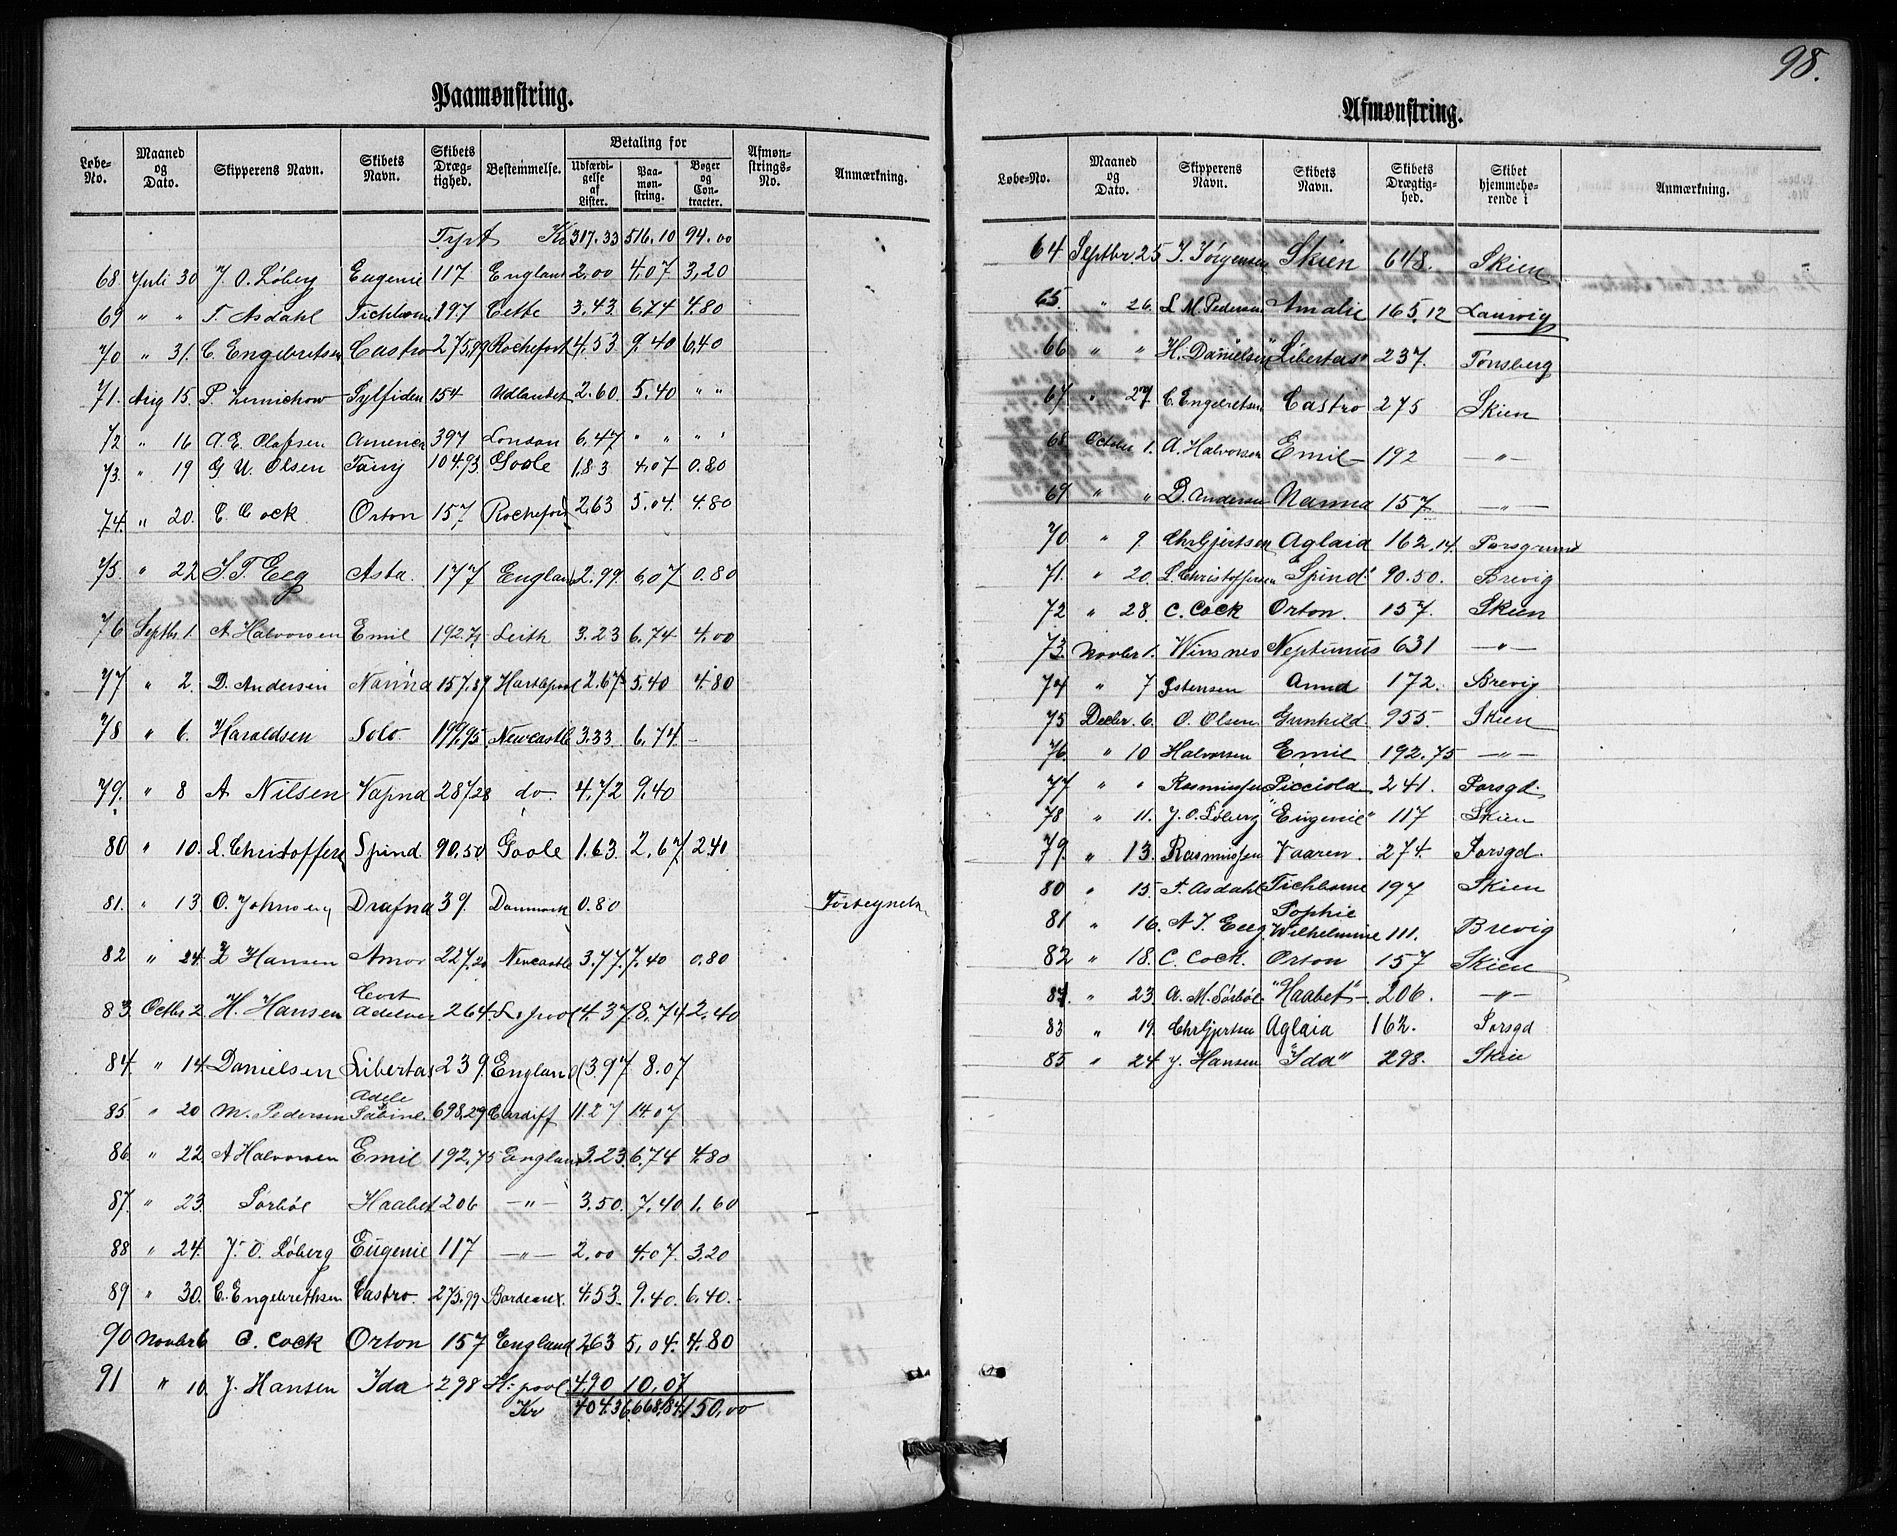 98.
Paamønstring.
Løbe-No. | Maaned og Dato. | Skipperens Navn. | Skibets Navn. | Skibets Drægtighed. | Bestemmelse. | Betaling for | Udfærdigelse af Lister. | Paamønstring. | Bøger og Contracter. | Afmønstrings-No. | Anmærkning.
Kr 317.33 516.10 94.00
68 Juli 30 J. O. Løberg Eugenie 117 England 2.00 4.07 3,20
69 " " T. Asdahl Tichborne 197 Cette 3.43 6.74 4.80
70 " 31. C. Engebretsen Castro 275,99 Rochefort 4.53 9.40 6,40
71. Aug 15. P. Sylfiden 154 Udlandet 2.60 5.40 " "
72 " 16 A. E. Olafsen America 397 London 6,47 " " " "
73. " 19 G U. Olsen 104.93 Goole 1.83 4.07 0.80
74. " 20. C. Cock Orton 157 Rochefort 2.63 5.04 4.80
75. " 22 S. T. Eeg Asta. 177 England 2.99 6,07 0.80
76 Septbr. 1. A Halvorsen Emil 192.75 Leith 3.23 6.74 4.00
77 " 2. D. Andersen Nanna 157.87 Hartlepool 2.67 5.40 4.80
78 " 6. Haraldsen Solo 199,95 Newcastle 3.33 6.74 -
79. " 8 A Nilsen Vapna 287,28 do. 4.72 9.40
80 " 10. L. Christoffersen Spind 90.50 Goole 1.63. 2.67 2.40
81. " 13 O. Johnsen Drafna 39. Danmark 0.80
82 " 24. Z Hansen Amor 227.20 Newcastle 3.77. 7.40 0.80
83 Octbr 2. H. Hansen Cort Adelaer 264 L.pool 4.37 8.74 2,40
84 " 14 Danielsen Libertas 239 England 3.97 8.07
85 " 20 M. Pedersen Adele Sabine 698,29 Cardiff 11.27 14.07
86. " 22 A Halvorsen Emil 192,75 England 3.23 6.74 4.80
87. " 23. Sørbøe Haabet 206 —"— 3.50. 7.40 1.60
88 " 24. J. O. Løberg Eugenie 117 —"— 2.00 4.07. 3.20
89 " 30. C. Engebrethsen Castro. 275.99 Bordeaux. 4.53 9.40. 6.40.
90 Novbr 6 C. Cock Orton 157 England 2.63 5.04. 4.80
91 " 10. J. Hansen Ida 298 H: pool 4.90 10.07
Kr 404.36 668,84 150.00
Afmønstring.
Løbe-No. | Maaned og Dato. | Skipperens Navn. | Skibets Navn. | Skibets Drægtighed. | Skibet hjemmehørende i | Anmærkning.
64 Septbr. 25 J. Jørgensen Skien 648. Skien
65. " 26. L M. Pedersen Amalie 165.12 Laurvig
66 " " H. Danielsen "Libertas" 237. Tønsberg
67. " 27 C. Engebretsen Castro 275 Skien
68. October 1. A. Halvorsen Emil 192 —"—
69 " " D. Andersen Nanna 157. —"—
70 " 9. Chr Gjertsen Aglaia 162.14. Porsgrund
71. " 20. L. Christoffersen "Spind" 90.50. Brevig
72 " 28. C. Cock Orton. 157. Skien
73. Novbr 1. Winsnes Neptunus 631 —"—
74 " 7 Istensen Anna 172. Brevig
75 Decbr. 6. O. Olsen Gunhild 955. Skien
76. " 10 Halvorsen Emil 192.75 —"—
77 " " Rasmussen Picciola 241. Porsgd.
78 " 11. J. O. Løberg "Eugenie" 117 Skien
79. " 13. Rasmussen Vaaren. 274. Porsgd.
80 " 15. T. Asdahl Tichborne 197 Skien
81 " 16. A T. Eeg Sophie Wilhelmine 111. Brevig
82 " 18. C. Cock. Orton 157 Skien
84. " 23. A. M. Sørbøe "Haabet" 206. —"—
83 " 19. Chr Gjertsen Aglaia 162. Porsgd
85 " 24 J. Hansen "Ida" 298. Skien